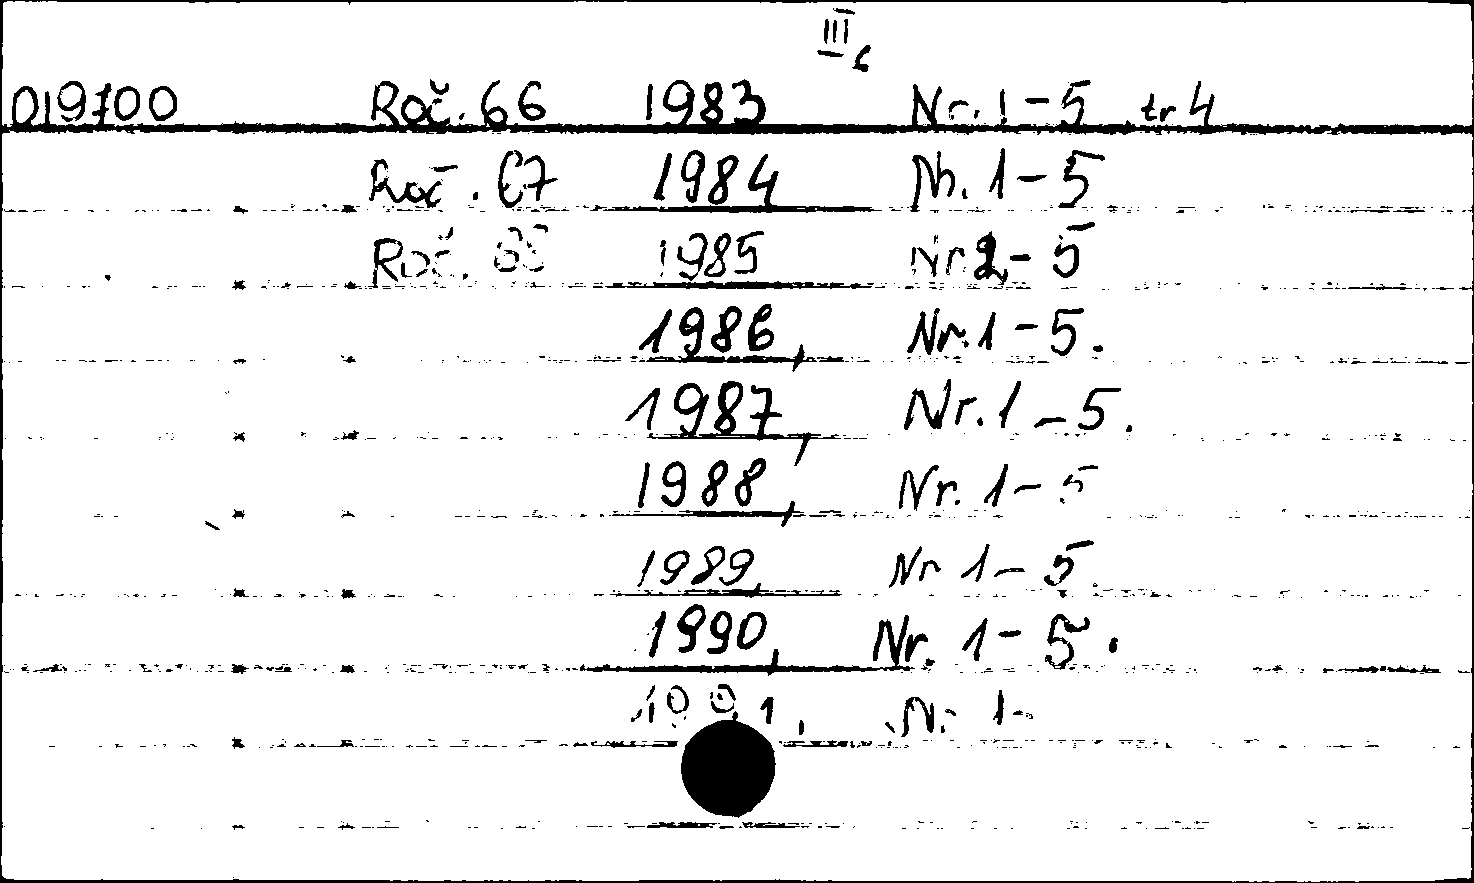 III 6
019700 Roč. 66 1983 Nr. 1-5 tr 4
Roč. 67 1984 Nr. 1-5
Roč. 68 1985 Nr 2-5
1986, Nr. 1-5.
1987, Nr. 1-5.
1988, Nr. 1-5
1989, Nr 1-5.
1990, Nr. 1-5.
1991, Nr. 1-